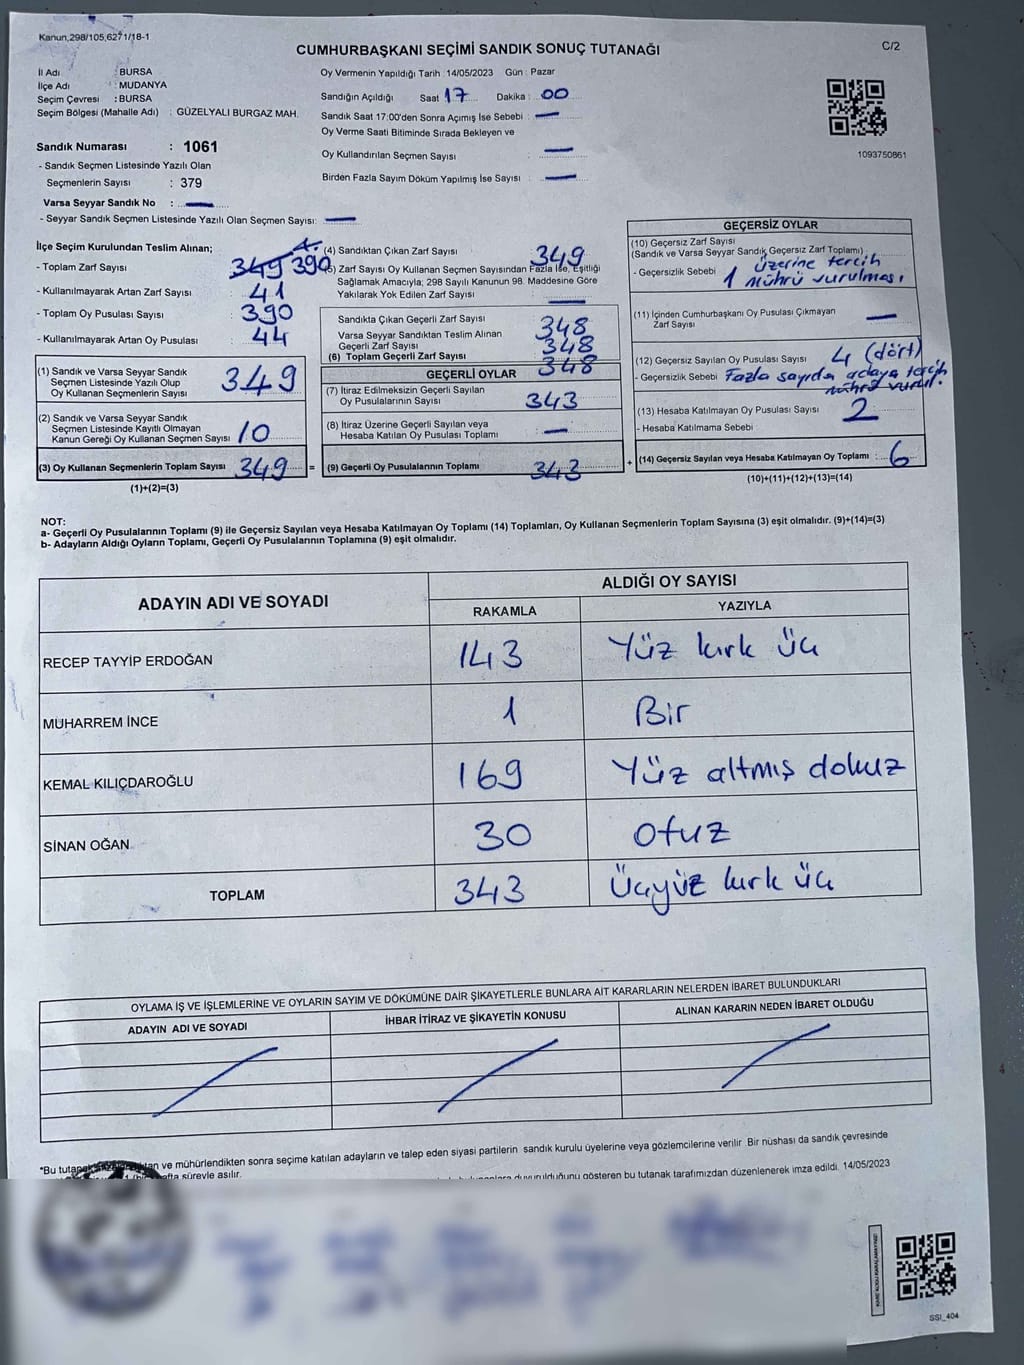 Kanun,298/105,6271/18-1
C/2
CUMHURBAŞKANI SEÇİMİ SANDIK SONUÇ TUTANAĞI
İl Adı : BURSA
İlçe Adı : MUDANYA
Seçim Çevresi : BURSA
Seçim Bölgesi (Mahalle Adı) : GÜZELYALI BURGAZ MAH.
Sandık Numarası : 1061
- Sandık Seçmen Listesinde Yazılı Olan
Seçmenlerin Sayısı : 379
Varsa Seyyar Sandık No : —
- Seyyar Sandık Seçmen Listesinde Yazılı Olan Seçmen Sayısı: —
Oy Vermenin Yapıldığı Tarih : 14/05/2023 Gün : Pazar
Sandığın Açıldığı Saat 17 Dakika : 00
Sandık Saat 17:00'den Sonra Açımış İse Sebebi : —
Oy Verme Saati Bitiminde Sırada Bekleyen ve
Oy Kullandırılan Seçmen Sayısı : —
Birden Fazla Sayım Döküm Yapılmış İse Sayısı : —
1093750861
İlçe Seçim Kurulundan Teslim Alınan;
- Toplam Zarf Sayısı : 349 390
- Kullanılmayarak Artan Zarf Sayısı : 41
- Toplam Oy Pusulası Sayısı : 390
- Kullanılmayarak Artan Oy Pusulası : 44
(1) Sandık ve Varsa Seyyar Sandık
Seçmen Listesinde Yazılı Olup
Oy Kullanan Seçmenlerin Sayısı 349
(2) Sandık ve Varsa Seyyar Sandık
Seçmen Listesinde Kayıtlı Olmayan
Kanun Gereği Oy Kullanan Seçmen Sayısı 10
(3) Oy Kullanan Seçmenlerin Toplam Sayısı 349 =
(1)+(2)=(3)
(4) Sandıktan Çıkan Zarf Sayısı 349
(5) Zarf Sayısı Oy Kullanan Seçmen Sayısından Fazla İse, Eşitliği
Sağlamak Amacıyla; 298 Sayılı Kanunun 98. Maddesine Göre
Yakılarak Yok Edilen Zarf Sayısı : —
Sandıkta Çıkan Geçerli Zarf Sayısı 348
Varsa Seyyar Sandıktan Teslim Alınan
Geçerli Zarf Sayısı 348
(6) Toplam Geçerli Zarf Sayısı 348
GEÇERLİ OYLAR
(7) İtiraz Edilmeksizin Geçerli Sayılan
Oy Pusulalarının Sayısı 343
(8) İtiraz Üzerine Geçerli Sayılan veya
Hesaba Katılan Oy Pusulası Toplamı : —
(9) Geçerli Oy Pusulalarının Toplamı 343 +
GEÇERSİZ OYLAR
(10) Geçersiz Zarf Sayısı
(Sandık ve Varsa Seyyar Sandık Geçersiz Zarf Toplamı)
- Geçersizlik Sebebi 1 üzerine tercih
mührü vurulması
(11) İçinden Cumhurbaşkanı Oy Pusulası Çıkmayan
Zarf Sayısı —
(12) Geçersiz Sayılan Oy Pusulası Sayısı 4 (dört)
- Geçersizlik Sebebi Fazla sayıda adaya tercih
mührü vurul.
(13) Hesaba Katılmayan Oy Pusulası Sayısı 2
- Hesaba Katılmama Sebebi
(14) Geçersiz Sayılan veya Hesaba Katılmayan Oy Toplamı : 6
(10)+(11)+(12)+(13)=(14)
NOT:
a- Geçerli Oy Pusulalarının Toplamı (9) ile Geçersiz Sayılan veya Hesaba Katılmayan Oy Toplamı (14) Toplamları, Oy Kullanan Seçmenlerin Toplam Sayısına (3) eşit olmalıdır. (9)+(14)=(3)
b- Adayların Aldığı Oyların Toplamı, Geçerli Oy Pusulalarının Toplamına (9) eşit olmalıdır.
ADAYIN ADI VE SOYADI
ALDIĞI OY SAYISI
RAKAMLA YAZIYLA
RECEP TAYYİP ERDOĞAN 143 Yüz kırk üç
MUHARREM İNCE 1 Bir
KEMAL KILIÇDAROĞLU 169 Yüz altmış dokuz
SİNAN OĞAN 30 Otuz
TOPLAM 343 Üçyüz kırk üç
OYLAMA İŞ VE İŞLEMLERİNE VE OYLARIN SAYIM VE DÖKÜMÜNE DAİR ŞİKAYETLERLE BUNLARA AİT KARARLARIN NELERDEN İBARET BULUNDUKLARI
ADAYIN ADI VE SOYADI İHBAR İTİRAZ VE ŞİKAYETİN KONUSU ALINAN KARARIN NEDEN İBARET OLDUĞU
*Bu ve mühürlendikten sonra seçime katılan adayların ve talep eden siyasi partilerin sandık kurulu üyelerine veya gözlemcilerine verilir. Bir nüshası da sandık çevresinde
süreyle asılır.
duyurulduğunu gösteren bu tutanak tarafımızdan düzenlenerek imza edildi. 14/05/2023
SSI_404